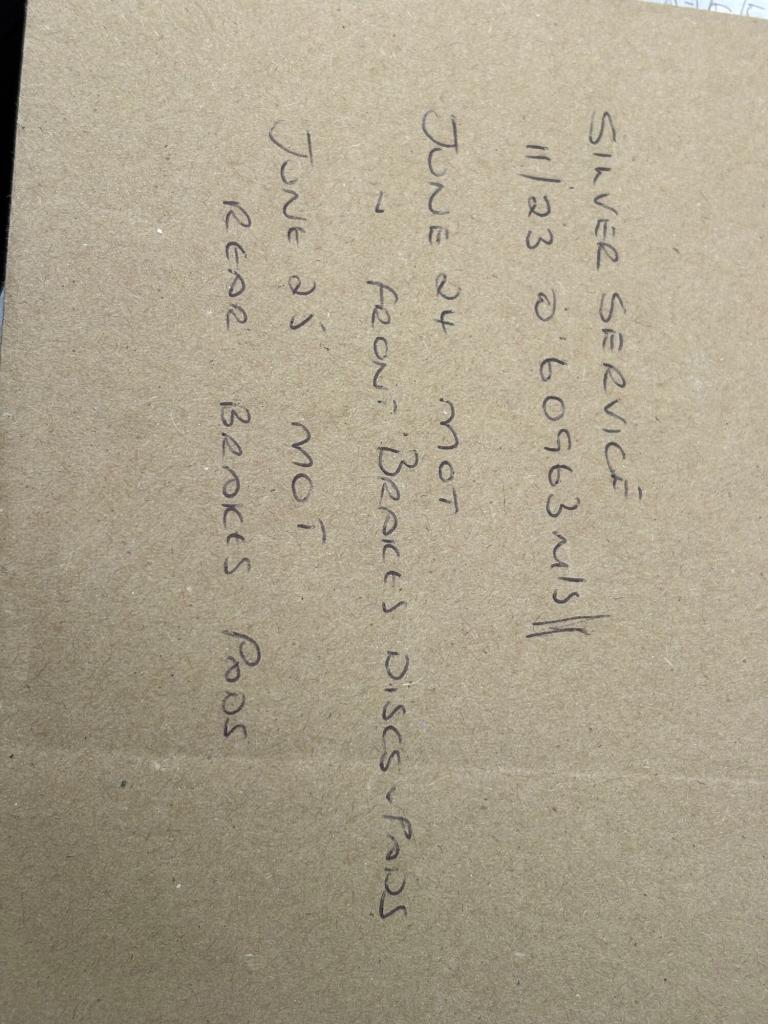 SILVER SERVICE
11/23 @ 60963 M/S
JUNE 24 MOT
~ FRONT BRAKES DISCS + PADS
JUNE 25 MOT
REAR BRAKES PADS